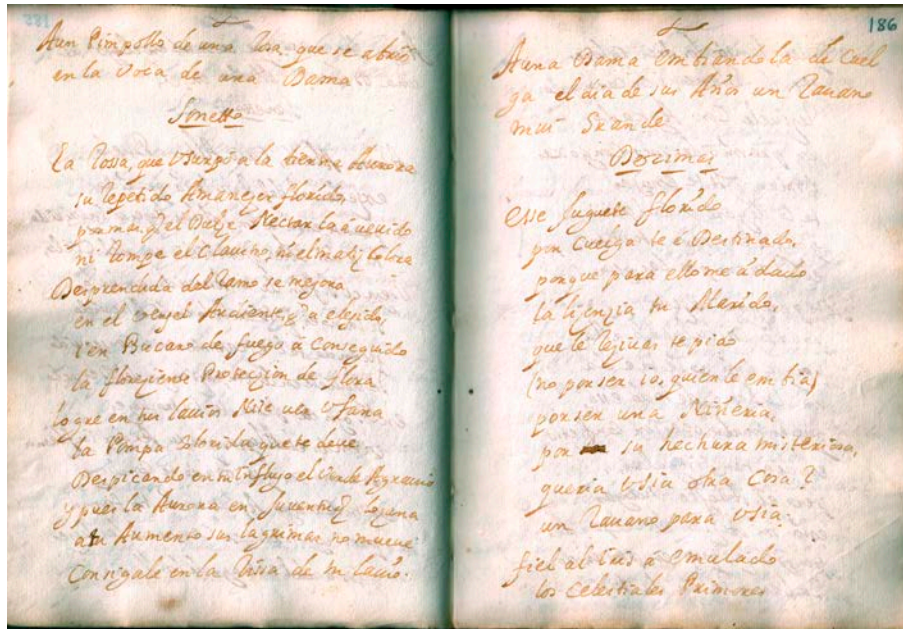 A un Pimpollo de una Rosa, que se abrio
en la Voca de una Dama
Sonetto
La Rossa, que Vsurpò a la tierna Aurora
su Repetido Amanezer florido,
por mas, q̃ el Dulze Nectar la à
ni Rompe el Claustro, ni el matiz Colora
Desprendida del Ramo se mejora
en el vergel Ardiente, q̃ a elegido,
i en Bucaro de fuego a Conseguido
la floreziente Proteczion de flora.
logre en tus lauios Nise Vfana
la Pompa florida, que te deve
Despicando en tu Influjo el Verde Agrauio
y pues la Aurora en Juventud lozana
a tu Aumento sus lagrimas no mueve
Consigale en la Rissa de tu lauio.
186
A una Dama embiandola de Cuel
ga el dia de sus Años un Rauano
mui Grande
Dezimas
Esse Juguete florido
por Cuelga te è Destinado,
porque para ello me à dado
la lizenzia tu Marido,
que le Reziuas te pido
(no por ser io, quien le embia)
por ser una Niñeria,
por su hechura misteriosa,
queria Vsia otra Cosa?
un Rauano para Vsia.
fiel al à emulado
los Celestiales Primores